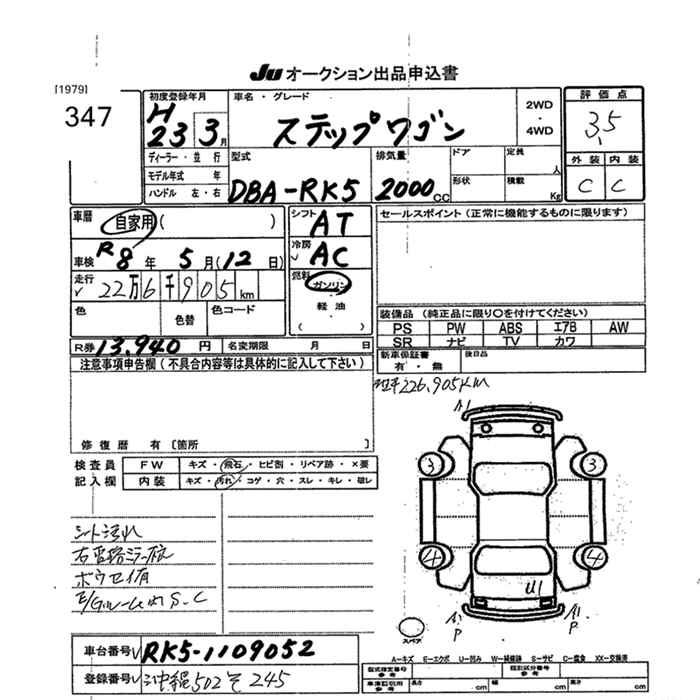 JU オークション出品申込書
[1979]
347
初度登録年月
H
23 3月
車名・グレード
ステップワゴン
2WD
・
4WD
評価点
3.5
外装 内装
C C
ディーラー・並行
モデル年式 年
ハンドル 左・右
型式
DBA-RK5
排気量
2000cc
ドア
形状
定員
人
積載
Kg
車暦
自家用( )
車検 R8年 5月(12日)
走行
22万6千905km
色
色替
色コード
シフト
AT
冷房
AC
燃料
ガソリン
・
軽油
( )
セールスポイント(正常に機能するものに限ります)
装備品 (純正品に限り〇を付けてください)
PS PW ABS エアB AW
SR ナビ TV カワ
R券 13,940円
名変期限 月 日
新車保証書
有・無
後日品
注意事項申告欄(不具合内容等は具体的に記入して下さい)
226,905KM
修復歴 有〔箇所 〕
検査員
記入欄
FW キズ・飛石・ヒビ割・リペア跡・×要
内装 キズ・汚れ・コゲ・穴・スレ・キレ・破レ
シート汚れ
ボウセイ有
A1
3 3
4 4
U1
A1
P
A1
P
スペア
車台番号 RK5-1109052
登録番号 沖縄502そ245
A…キズ E…エクボ U…凹み W…補修跡 S…サビ C…腐食 XX…交換済
型式指定番号
類別区分番号
車庫証明用
参考
長さ cm
幅 cm
高さ cm